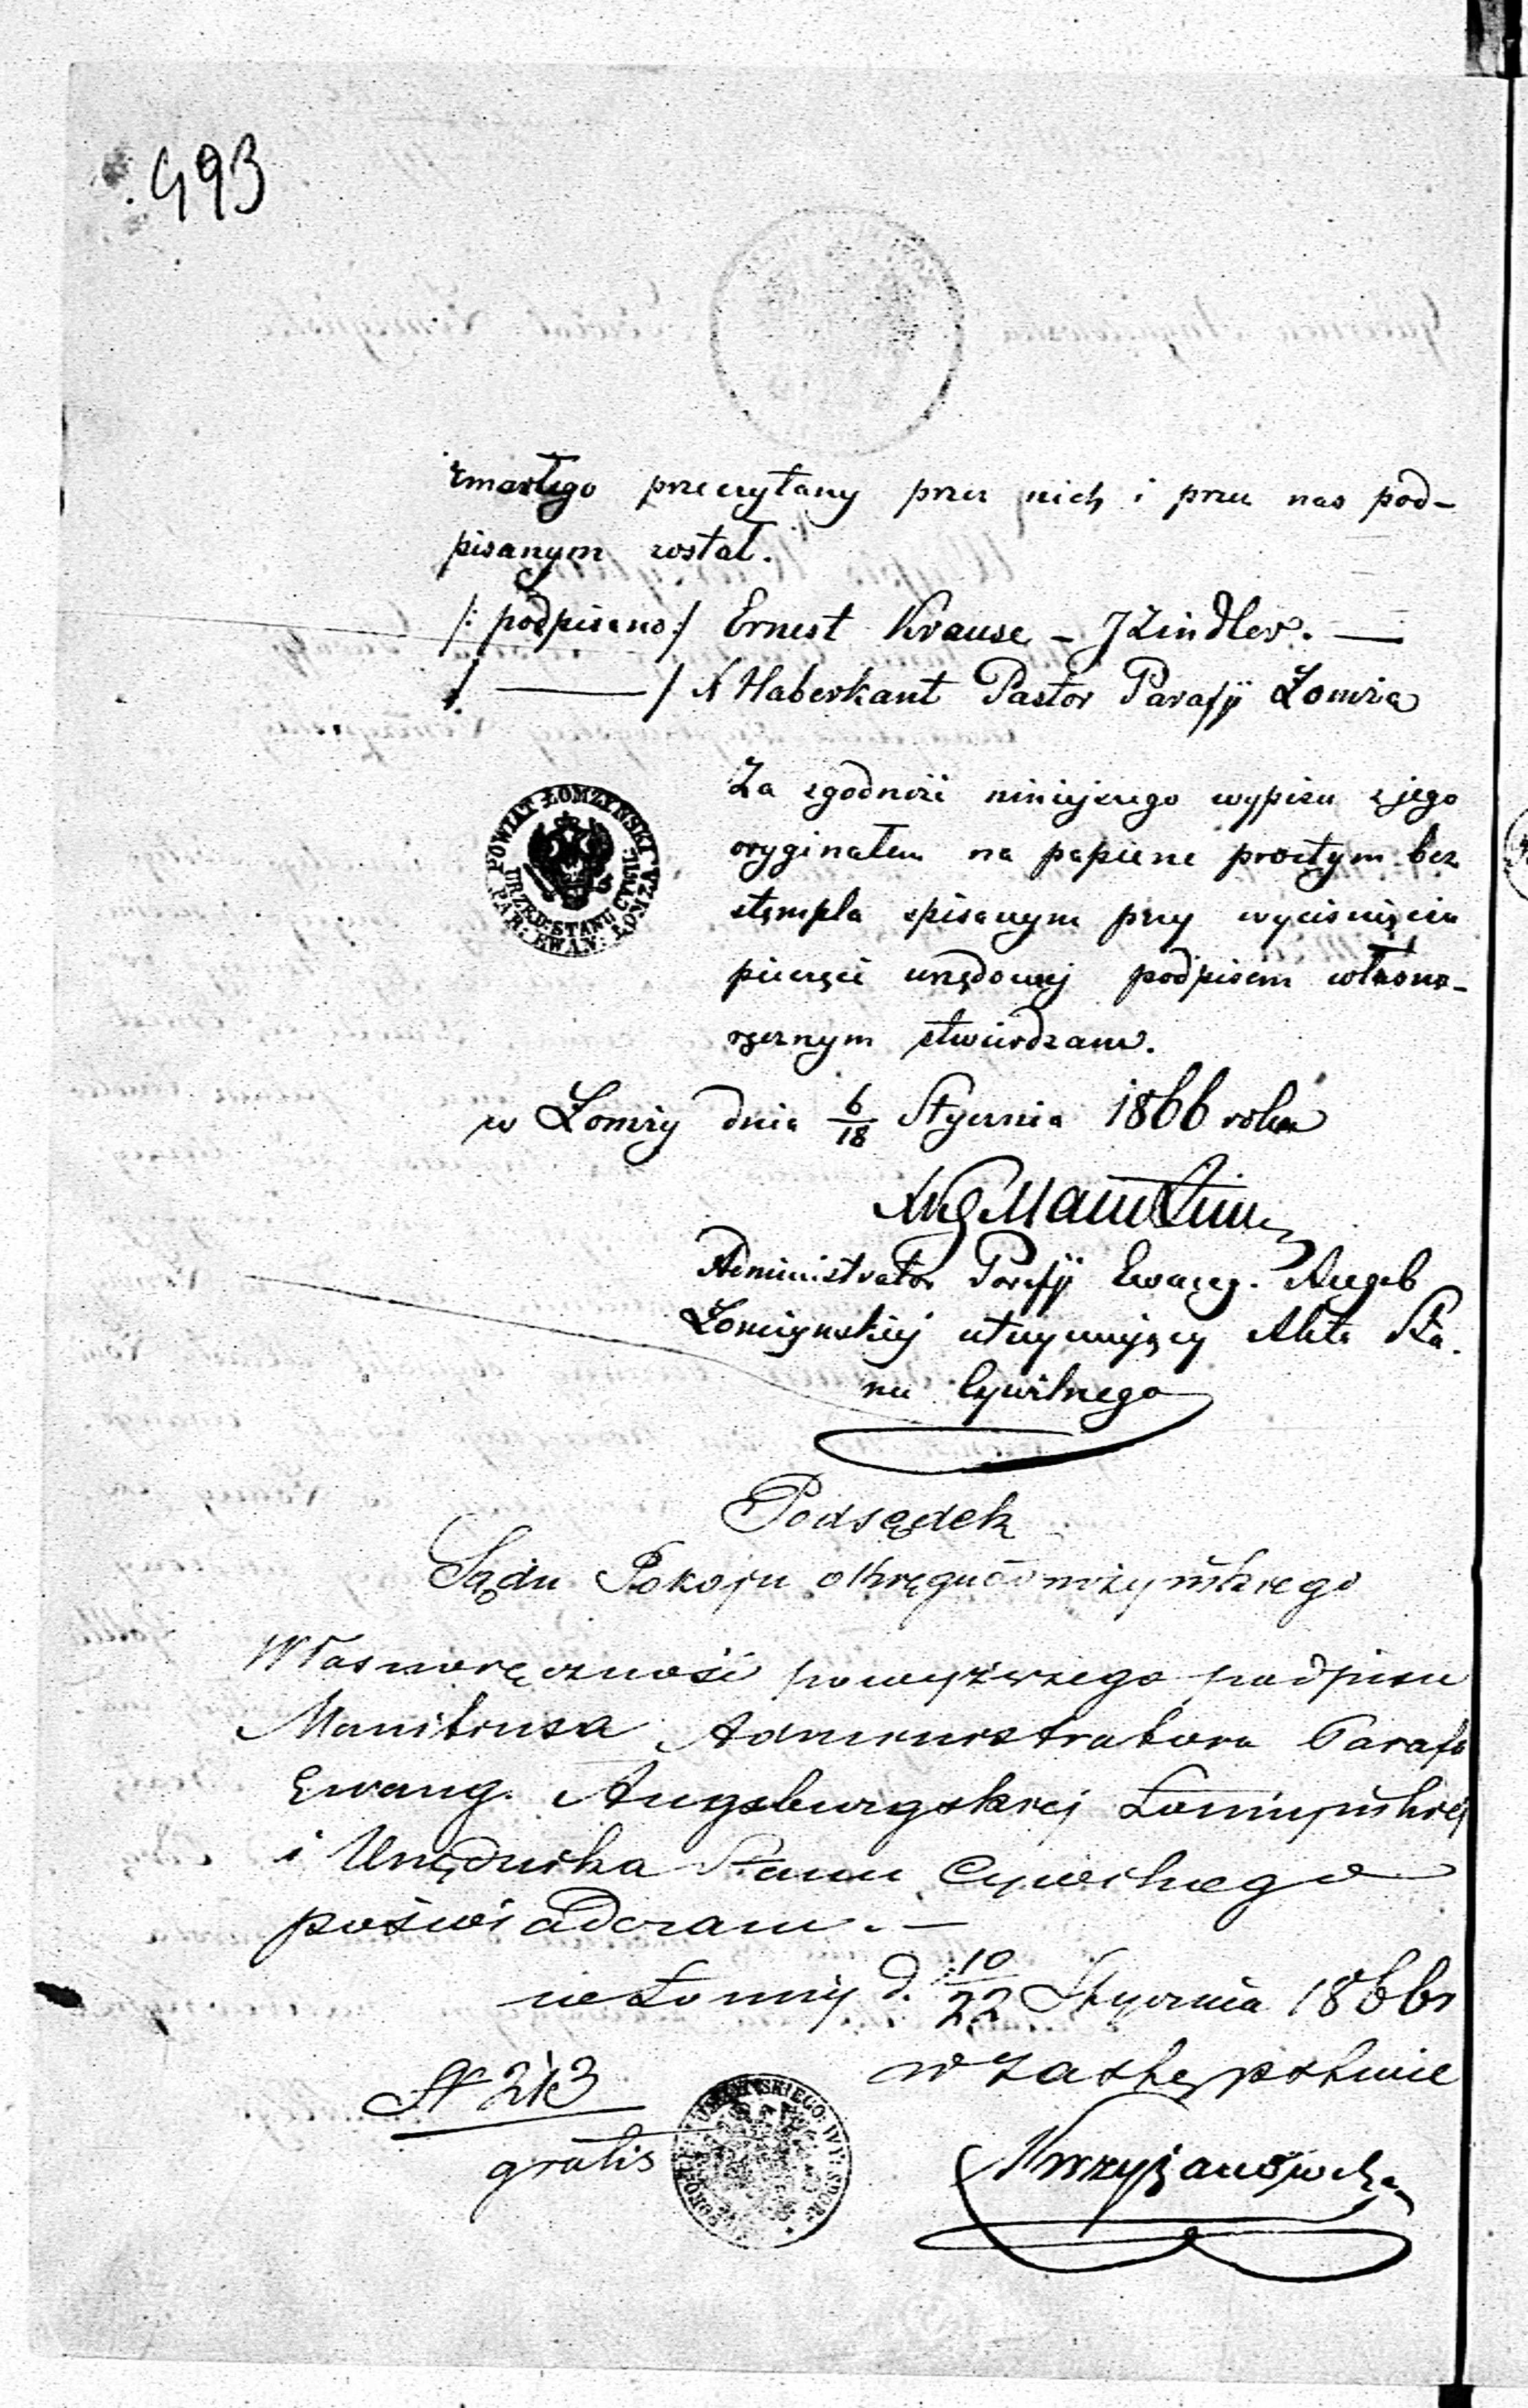 493
zmarłego przeczytany przez nich i przez nas pod-
pisanym został.
/: podpisano :/ Ernest Krause – J Zindler. —
/: ——— / Haberkant Pastor Parafij Łomża
Za zgodność niniejszego wypisu z jego
oryginałem na papierze prostym bez
stępmpla spisanym przy wyciśnięciu
pieczęci urzędowej podpisem własno-
ręcznym stwierdzam.
w Łomży dnia 6/18 Stycznia 1866 roku
Administrator Parafij Ewang. Augsb
Łomżyńskiej utrzymujący Akta Sta.
nu Cywilnego
POWIAT ŁOMZYŃSKI
URZĘD: STANU CYWIL:
PAR: EWAN: ŁOMZA
Podsędek
Sądu Pokoju okręgu Łomżyńskiego
Własnoręczność powyższego podpisu
Manitiusa Administratora Parafi
Ewang. Augsburgskiej Łomżyńskiej
i Urzędnika Stanu Cywilnego
poświadczam. —
w Łomży d. 10/22 Stycznia 1866 r
w Zastępstwie
N 213
gratis
Krzyżanowski